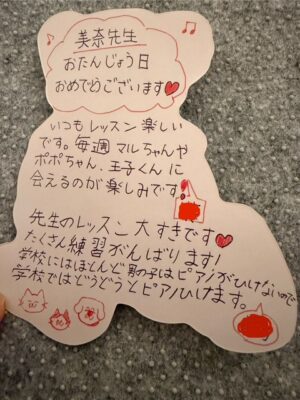 美奈先生
おたんじょう日
おめでとうございます
いつもレッスン楽しい
です。毎週マルちゃんや
ポポちゃん、王子くんに
会えるのが楽しみです。
先生のレッスン大すきです
たくさん練習がんばります!
学校にはほとんど男の子はピアノがひけないので
学校ではどうどうとピアノひけます。